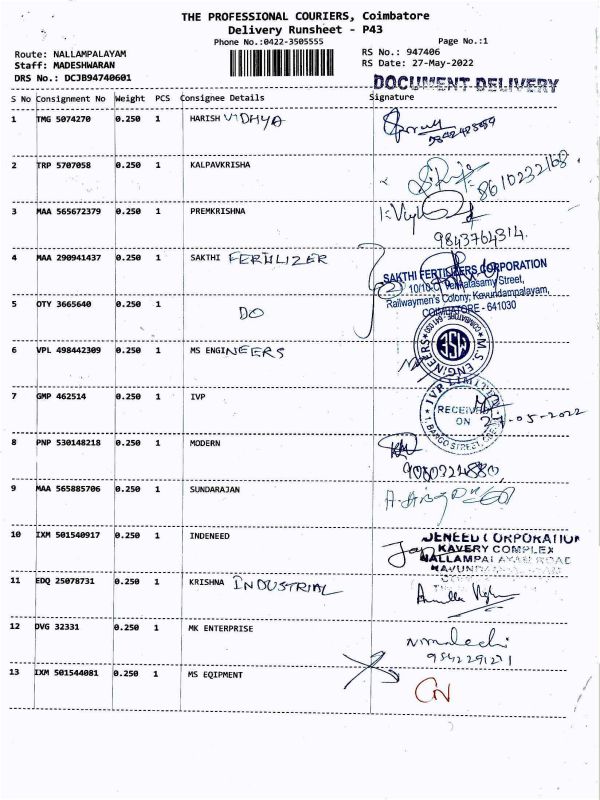 THE PROFESSIONAL COURIERS, Coimbatore
Delivery Runsheet - P43
Phone No.:0422-3505555
Page No.:1
Route: NALLAMPALAYAM
RS No.: 947406
Staff: MADESHWARAN
RS Date: 27-May-2022
DRS No.: DCJB94740601
DOCUMENT DELIVERY
S No Consignment No Weight PCS Consignee Details Signature
1 TMG 5074270 0.250 1 HARISH VIDHYA
2 TRP 5707058 0.250 1 KALPAVKRISHA
8610232168.
3 MAA 565672379 0.250 1 PREMKRISHNA
9843764314.
4 MAA 290941437 0.250 1 SAKTHI FERTILIZER
SAKTHI FERTILIZERS CORPORATION
Venkatasamy Street,
Railwaymen's Colony, Kavundampalayam,
COIMBATORE - 641030
5 OTY 3665640 0.250 1 DO
6 VPL 498442309 0.250 1 MS ENGINEERS
M.S. ENGINEERS
MSE
7 GMP 462514 0.250 1 IVP
IVP LIMITED
RECEIVED
ON 27-05-2022
8 PNP 530148218 0.250 1 MODERN
9 MAA 565885706 0.250 1 SUNDARAJAN
10 IXM 501540917 0.250 1 INDENEED
DENEED CORPORATION
KAVERY COMPLEX
NALLAMPALAYAM ROAD
11 EDQ 25078731 0.250 1 KRISHNA INDUSTRIAL
12 DVG 32331 0.250 1 MK ENTERPRISE
13 IXM 501544081 0.250 1 MS EQIPMENT
CN